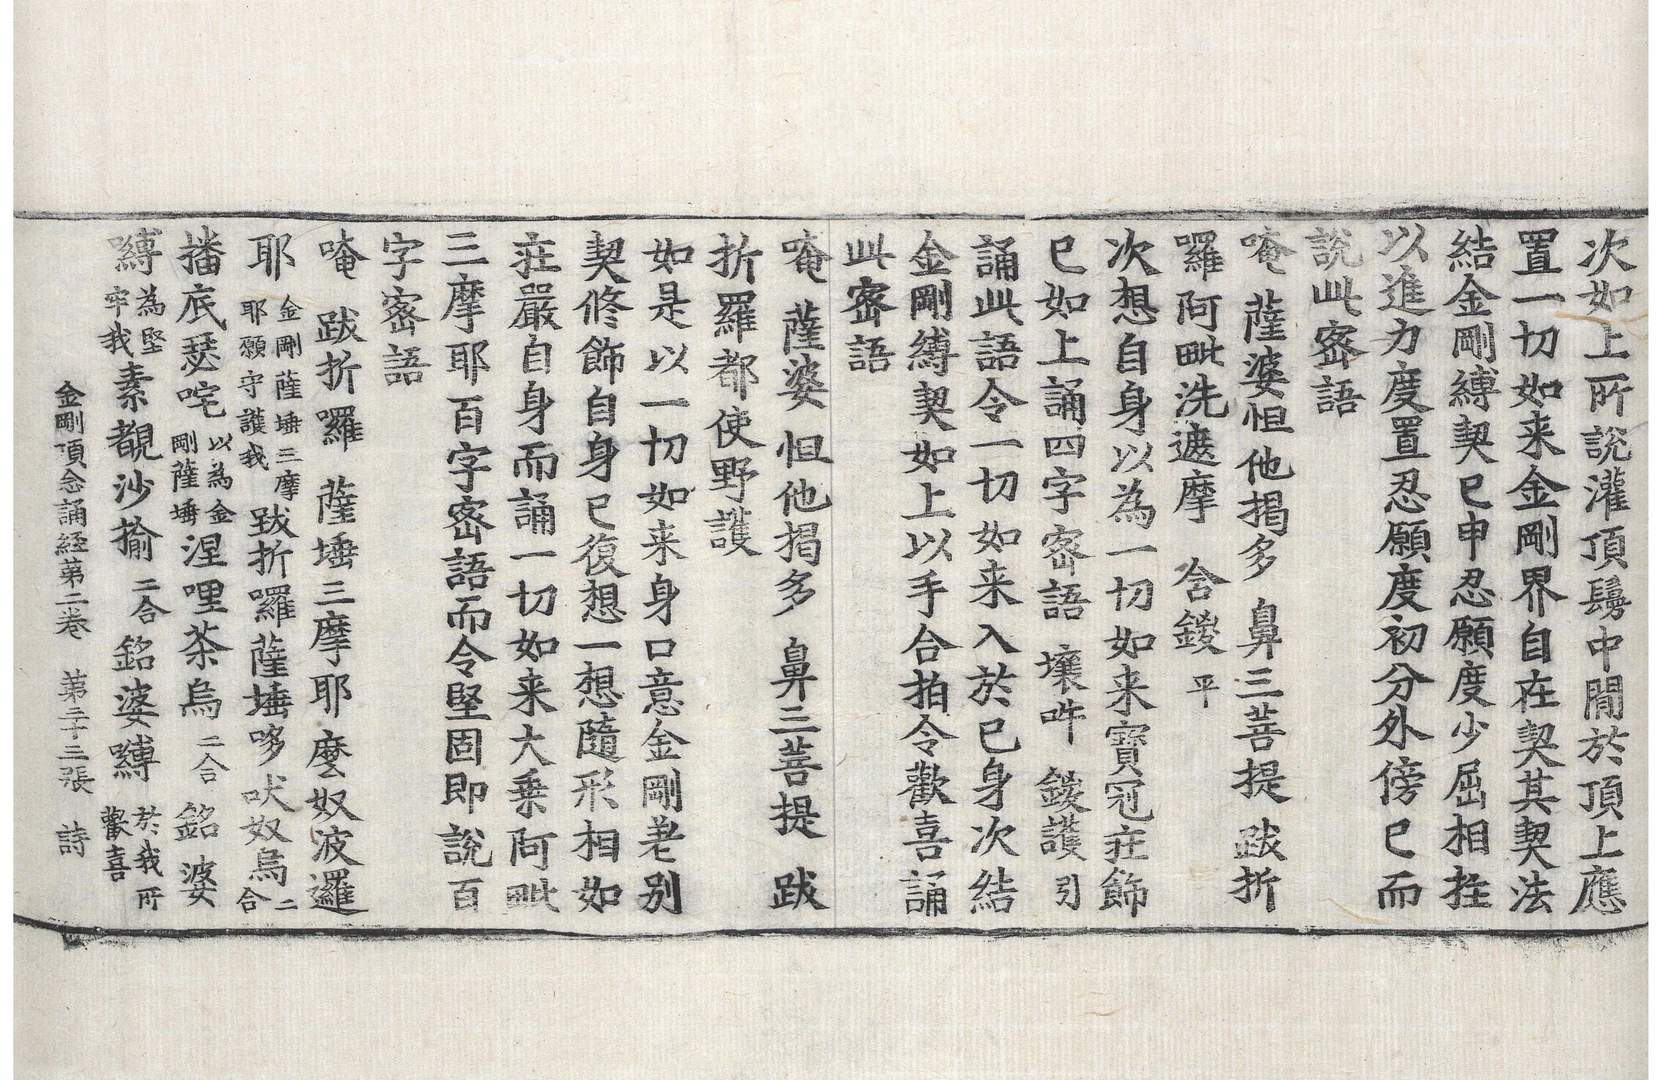 次如上所說灌頂鬘中閒於頂上應
置一切如来金剛界自在契其契法
結金剛縛契已申忍願度少屈相拄
以進力度置忍願度初分外傍已而
說此密語
唵 薩婆怛他揭多 鼻三菩提 跋折
囉 阿毗洗遮摩 含鑁 平
次想自身以為一切如来寶冠莊飾
已如上誦四字密語 壤吽 鑁護 引
誦此語令一切如来入於已身次結
金剛縛契如上以手合拍令歡喜誦
此密語
唵 薩婆 怛他揭多 鼻三菩提 跋
折羅都使野護
如是以一切如来身口意金剛差別
契修飾自身已復想一想隨形相如
莊嚴自身而誦一切如来大乗阿毗
三摩耶百字密語而令堅固即說百
字密語
唵 跋折囉 薩埵三摩耶 麼奴波邏
耶 金剛薩埵三摩耶願守護我 跋折囉薩埵哆吠奴烏 二合
播底瑟咤 以為金剛薩埵 涅哩茶烏 二合 銘 婆
縛 為堅牢我 素覩沙揄 二合 銘婆縛 於我所歡喜
金剛頂念誦經第二卷 第三十三張 詩